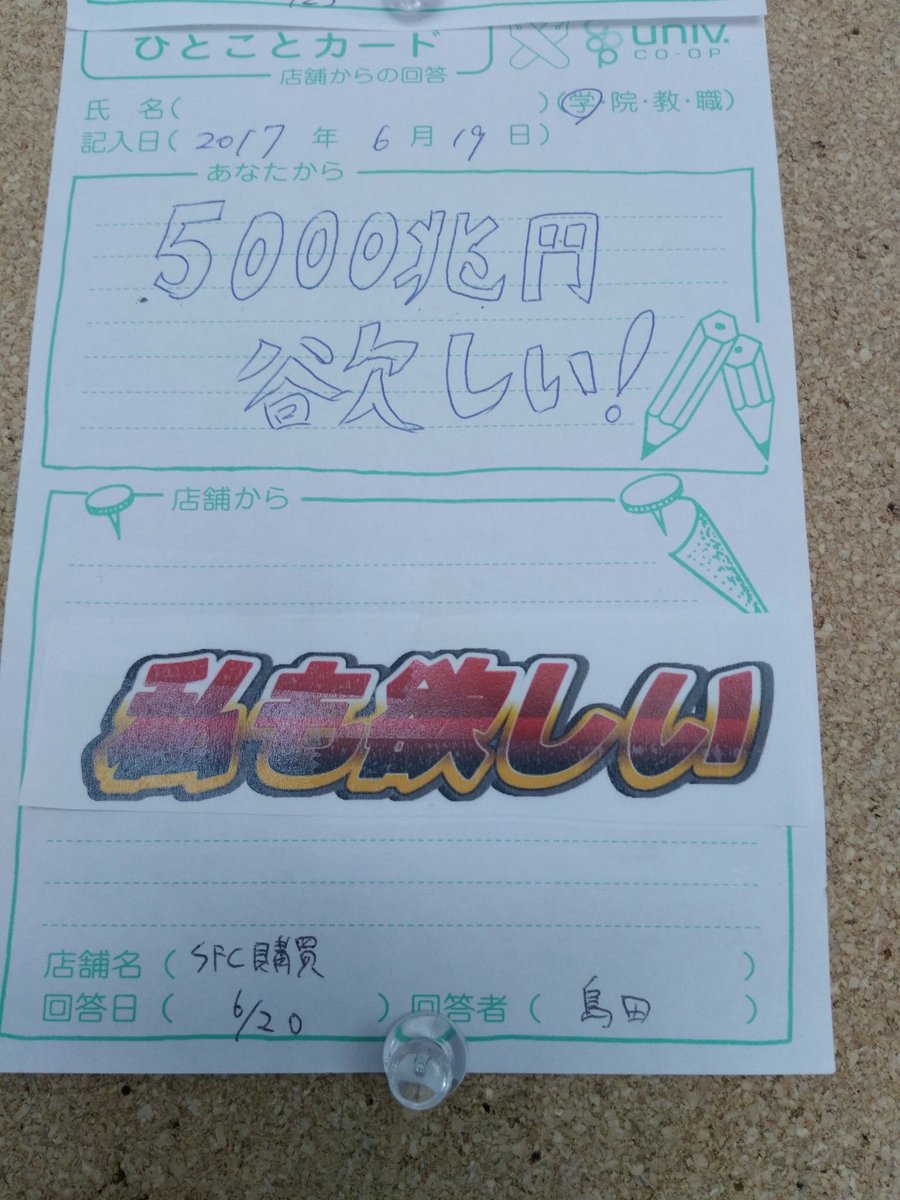 ひとことカード
univ.
CO-OP
店舗からの回答
氏 名( )(学・院・教・職)
記入日( 2017 年 6 月 19 日)
あなたから
5000兆円
欲しい!
店舗から
私も欲しい
店舗名( SFC購買 )
回答日( 6/20 ) 回答者( 島田 )